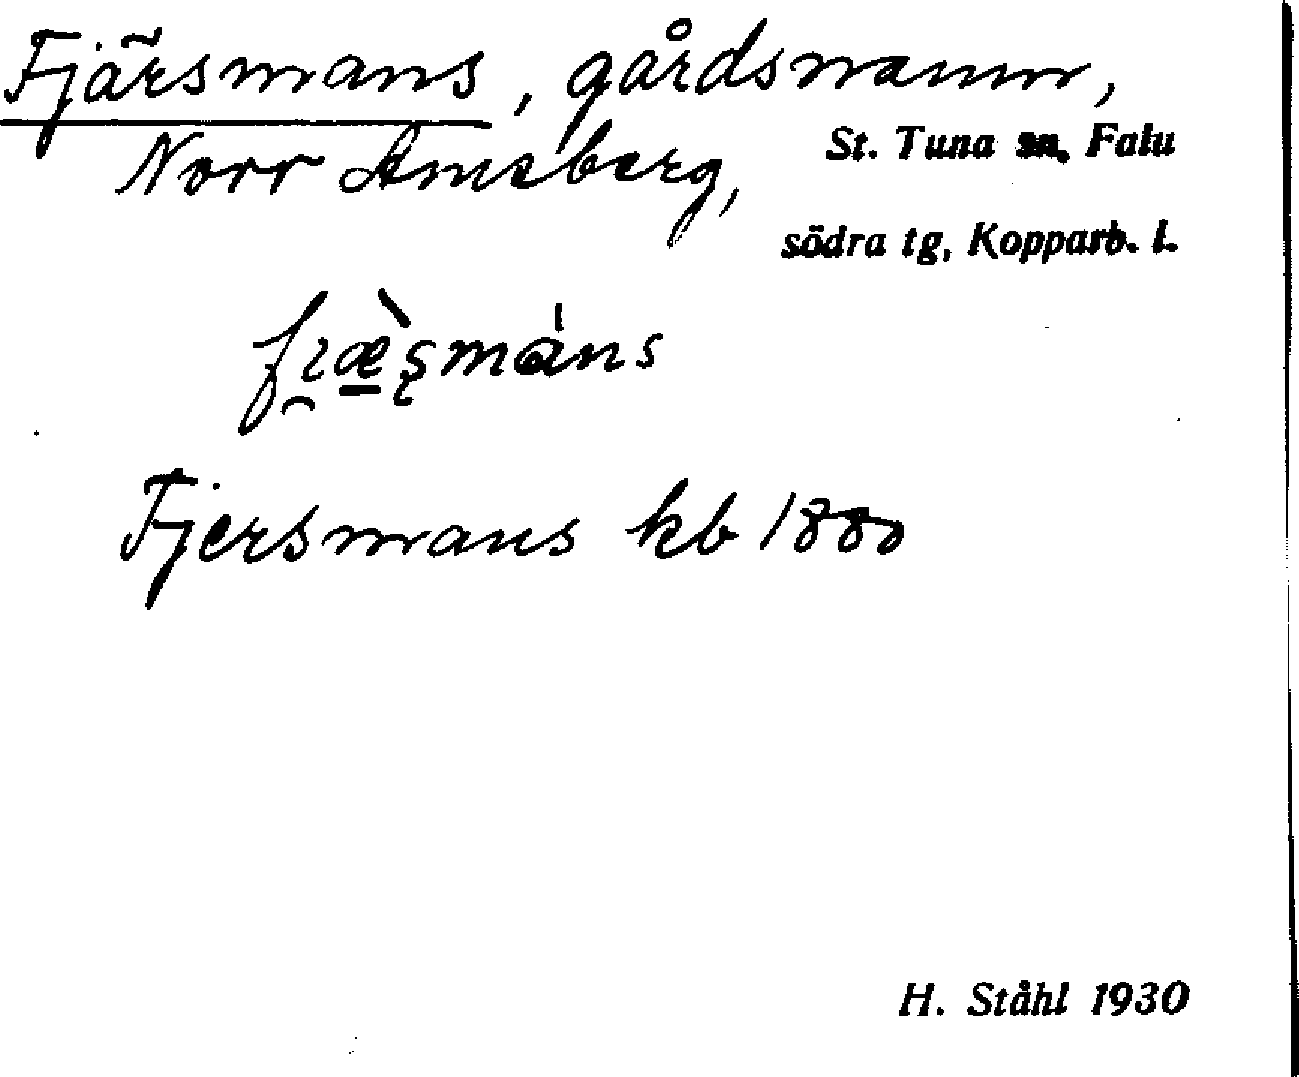 Fjärsmans, gårdsnamn,
Norr Amsberg,
St. Tuna sn, Falu
södra tg, Kopparb. l.
Fjersmans kb 1880
H. Ståhl 1930